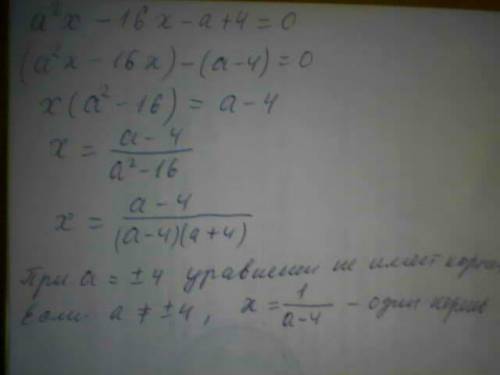 a²x - 16x - a + 4 = 0
(a²x - 16x) - (a - 4) = 0
x(a² - 16) = a - 4
x = (a - 4)/(a² - 16)
x = (a - 4)/((a - 4)(a + 4))
При a = ±4 уравнение не имеет корней
Если a ≠ ±4, x = 1/(a - 4) - один корень